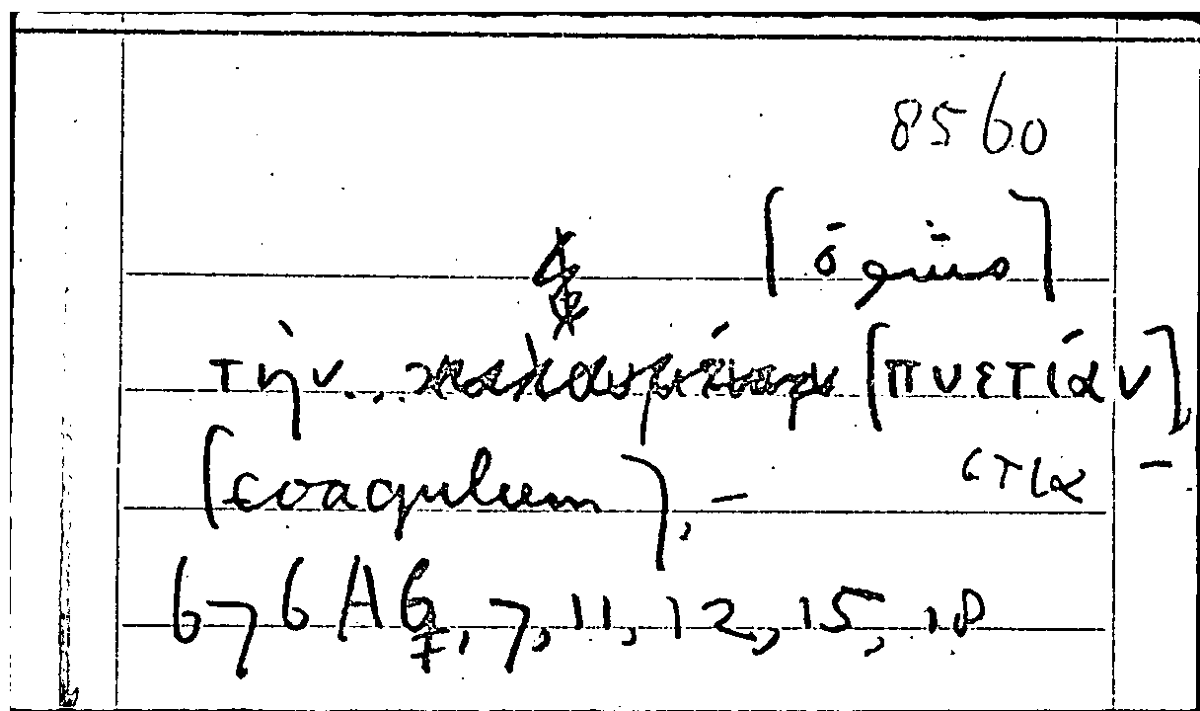 8560
[ ]
τὴν... [πυετίαν],
[coagulum], – ετια –
676 A 6, 7, 11, 12, 15, 18